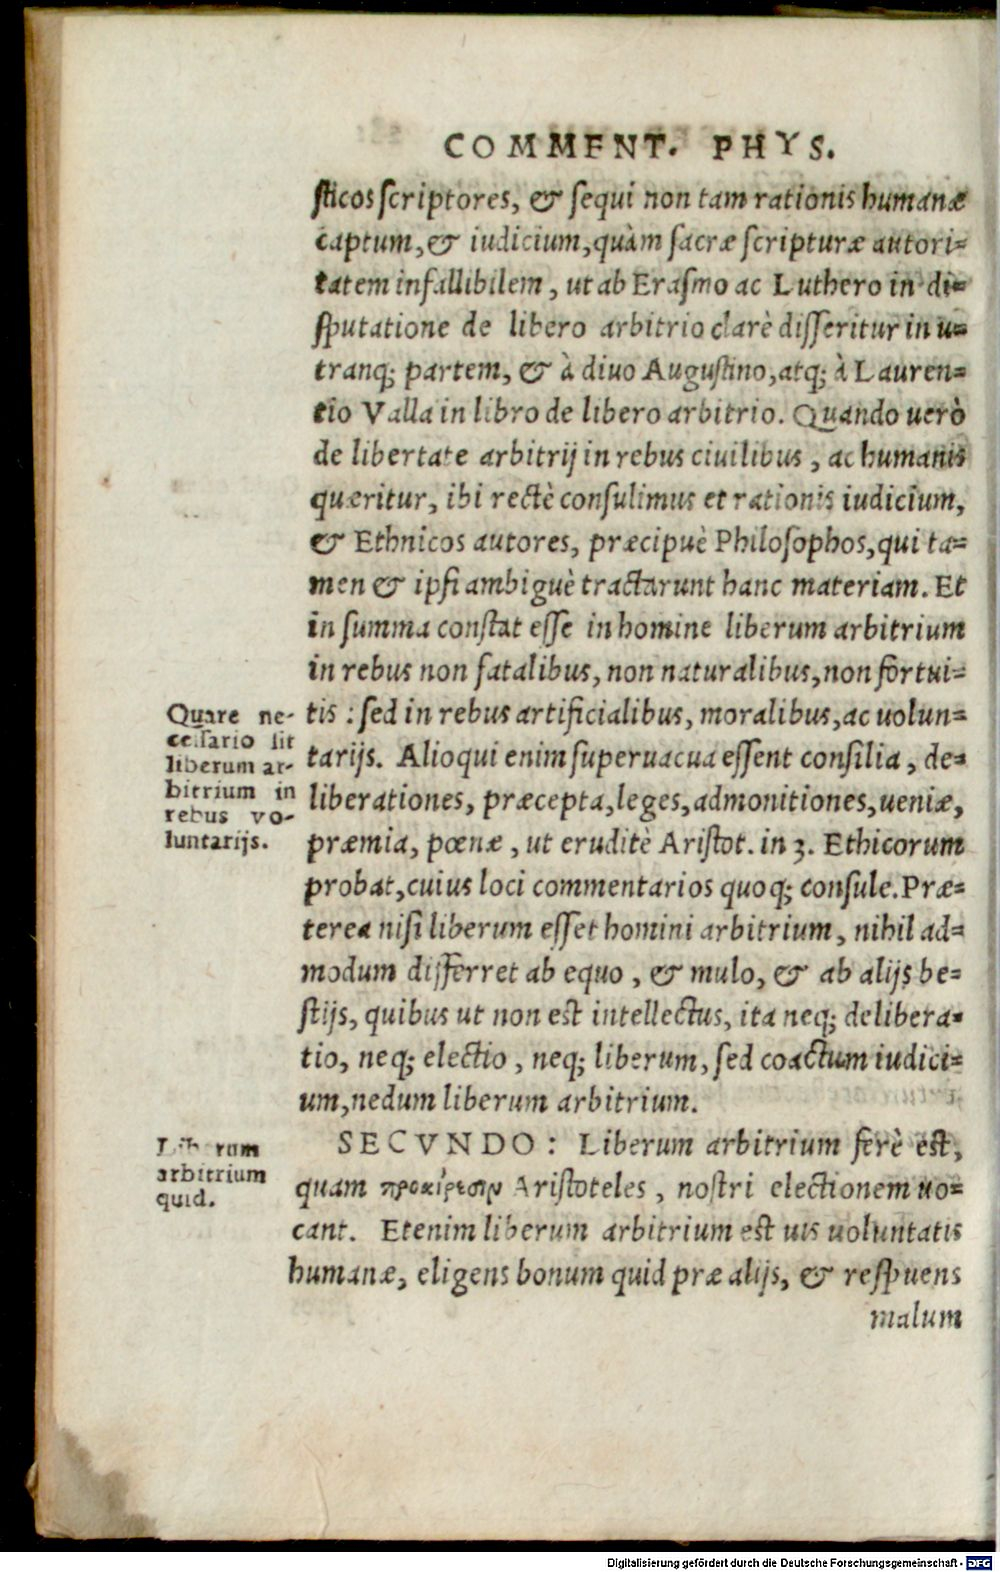 COMMENT. PHYS.
sticos scriptores, & sequi non tam rationis humanæ
captum, & iudicium, quàm sacræ scripturæ autori-
tatem infallibilem, ut ab Erasmo ac Luthero in di-
sputatione de libero arbitrio clarè disseritur in u-
tranq; partem, & à diuo Augustino, atq; à Lauren-
tio Valla in libro de libero arbitrio. Quando uerò
de libertate arbitrij in rebus ciuilibus, ac humanis
quæritur, ibi rectè consulimus et rationis iudicium,
& Ethnicos autores, præcipuè Philosophos, qui ta-
men & ipsi ambiguè tractarunt hanc materiam. Et
in summa constat esse in homine liberum arbitrium
in rebus non fatalibus, non naturalibus, non fortui-
tis : sed in rebus artificialibus, moralibus, ac uolun-
tarijs. Alioqui enim superuacua essent consilia, de-
liberationes, præcepta, leges, admonitiones, ueniæ,
præmia, pœnæ, ut eruditè Aristot. in 3. Ethicorum
probat, cuius loci commentarios quoq; consule. Præ-
terea nisi liberum esset homini arbitrium, nihil ad-
modum differret ab equo, & mulo, & ab alijs be-
stijs, quibus ut non est intellectus, ita neq; delibera-
tio, neq; electio, neq; liberum, sed coactum iudici-
um, nedum liberum arbitrium.
Quare ne-
cessario sit
liberum ar-
bitrium in
rebus vo-
luntarijs.
SECVNDO : Liberum arbitrium ferè est,
quam προαίρεσιν Aristoteles, nostri electionem uo-
cant. Etenim liberum arbitrium est uis uoluntatis
humanæ, eligens bonum quid præ alijs, & respuens
malum
Liberum
arbitrium
quid.
Digitalisierung gefördert durch die Deutsche Forschungsgemeinschaft - DFG